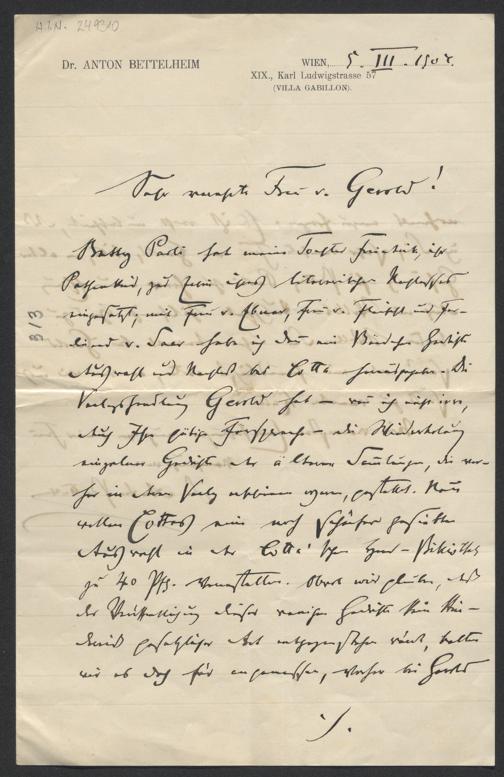 H.I.N. 249310
Dr. ANTON BETTELHEIM
WIEN, 5. III. 190
XIX., Karl Ludwigstrasse 57
(VILLA GABILLON).
Sehr verehrte Frau v. Gerold!
Betty Paoli hat meine Tochter, ihr
Pathenkind, zur Erbin ihres literarischen Nachlasses
eingesetzt; mit Frau v. Ebner, Frau v. Fleischl und Fer-
dinand v. Saar habe ich dann ein Bändchen Gedichte
Auswahl und Nachlaß bei Cotta herausgegeben. Die
Verlagshandlung Gerold hat – wenn ich nicht irre,
auch Ihre gütige Fürsprache – die Wiederholung
einzelner Gedichte der älteren Sammlungen, die vor-
her in deren Verlag erschienen waren, gestattet. Nun
wollen Cottas eine noch schärfer gesiebte
Auswahl in der Cotta'schen Hand-Bibliothek
zu 40 Pfg. veranstalten. Obwol wir glauben, daß
der Vervielfältigung dieser wenigen Gedichte kein Hin-
derniß gesetzlicher Art entgegenstehen würde, halten
wir es doch für angemessen, vorher bei Gerolds
./.
313